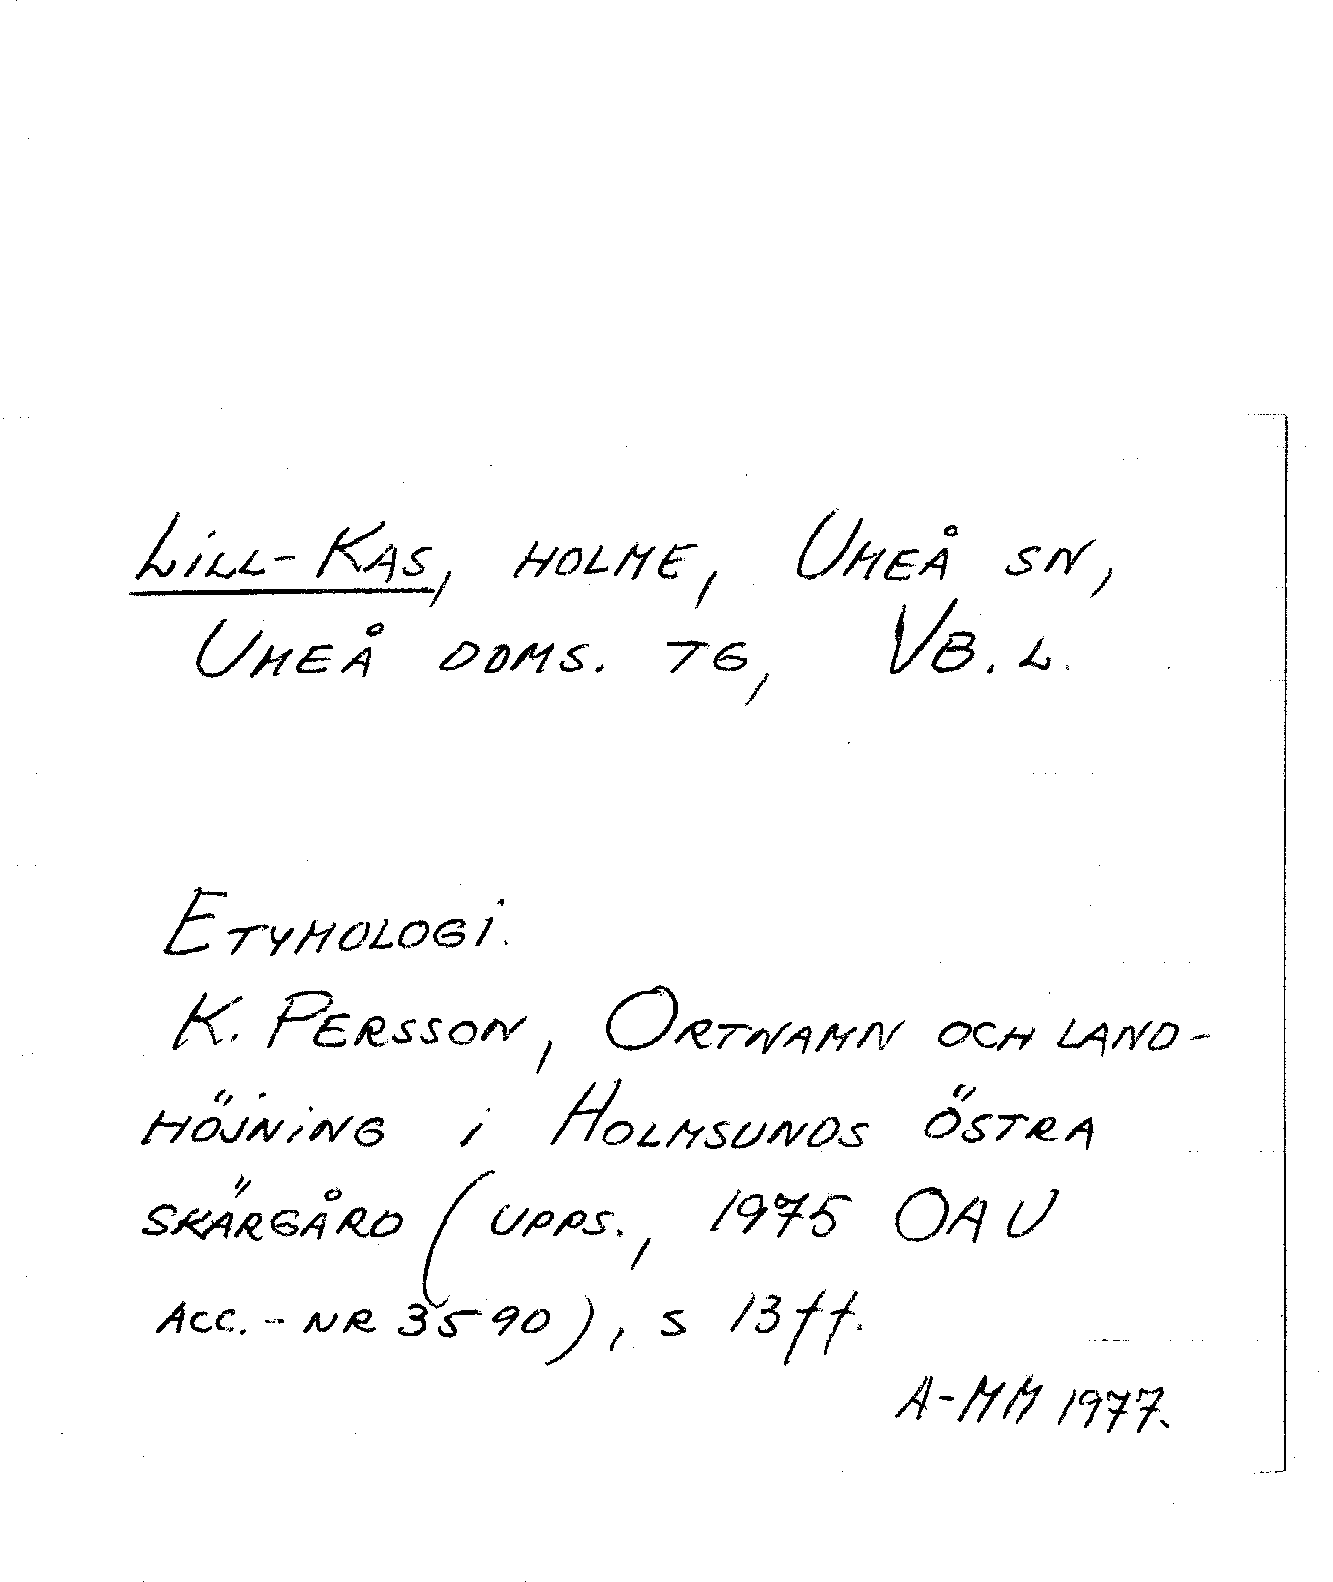 Lill-Kas, holme, Umeå sn,
Umeå doms. tg, Vb. l.
Etymologi.
K. Persson, Ortnamn och land-
höjning i Holmsunds östra
skärgård (Upps., 1975 OAU
acc.-nr 3590), s 13 ff.
A-MM 1977.